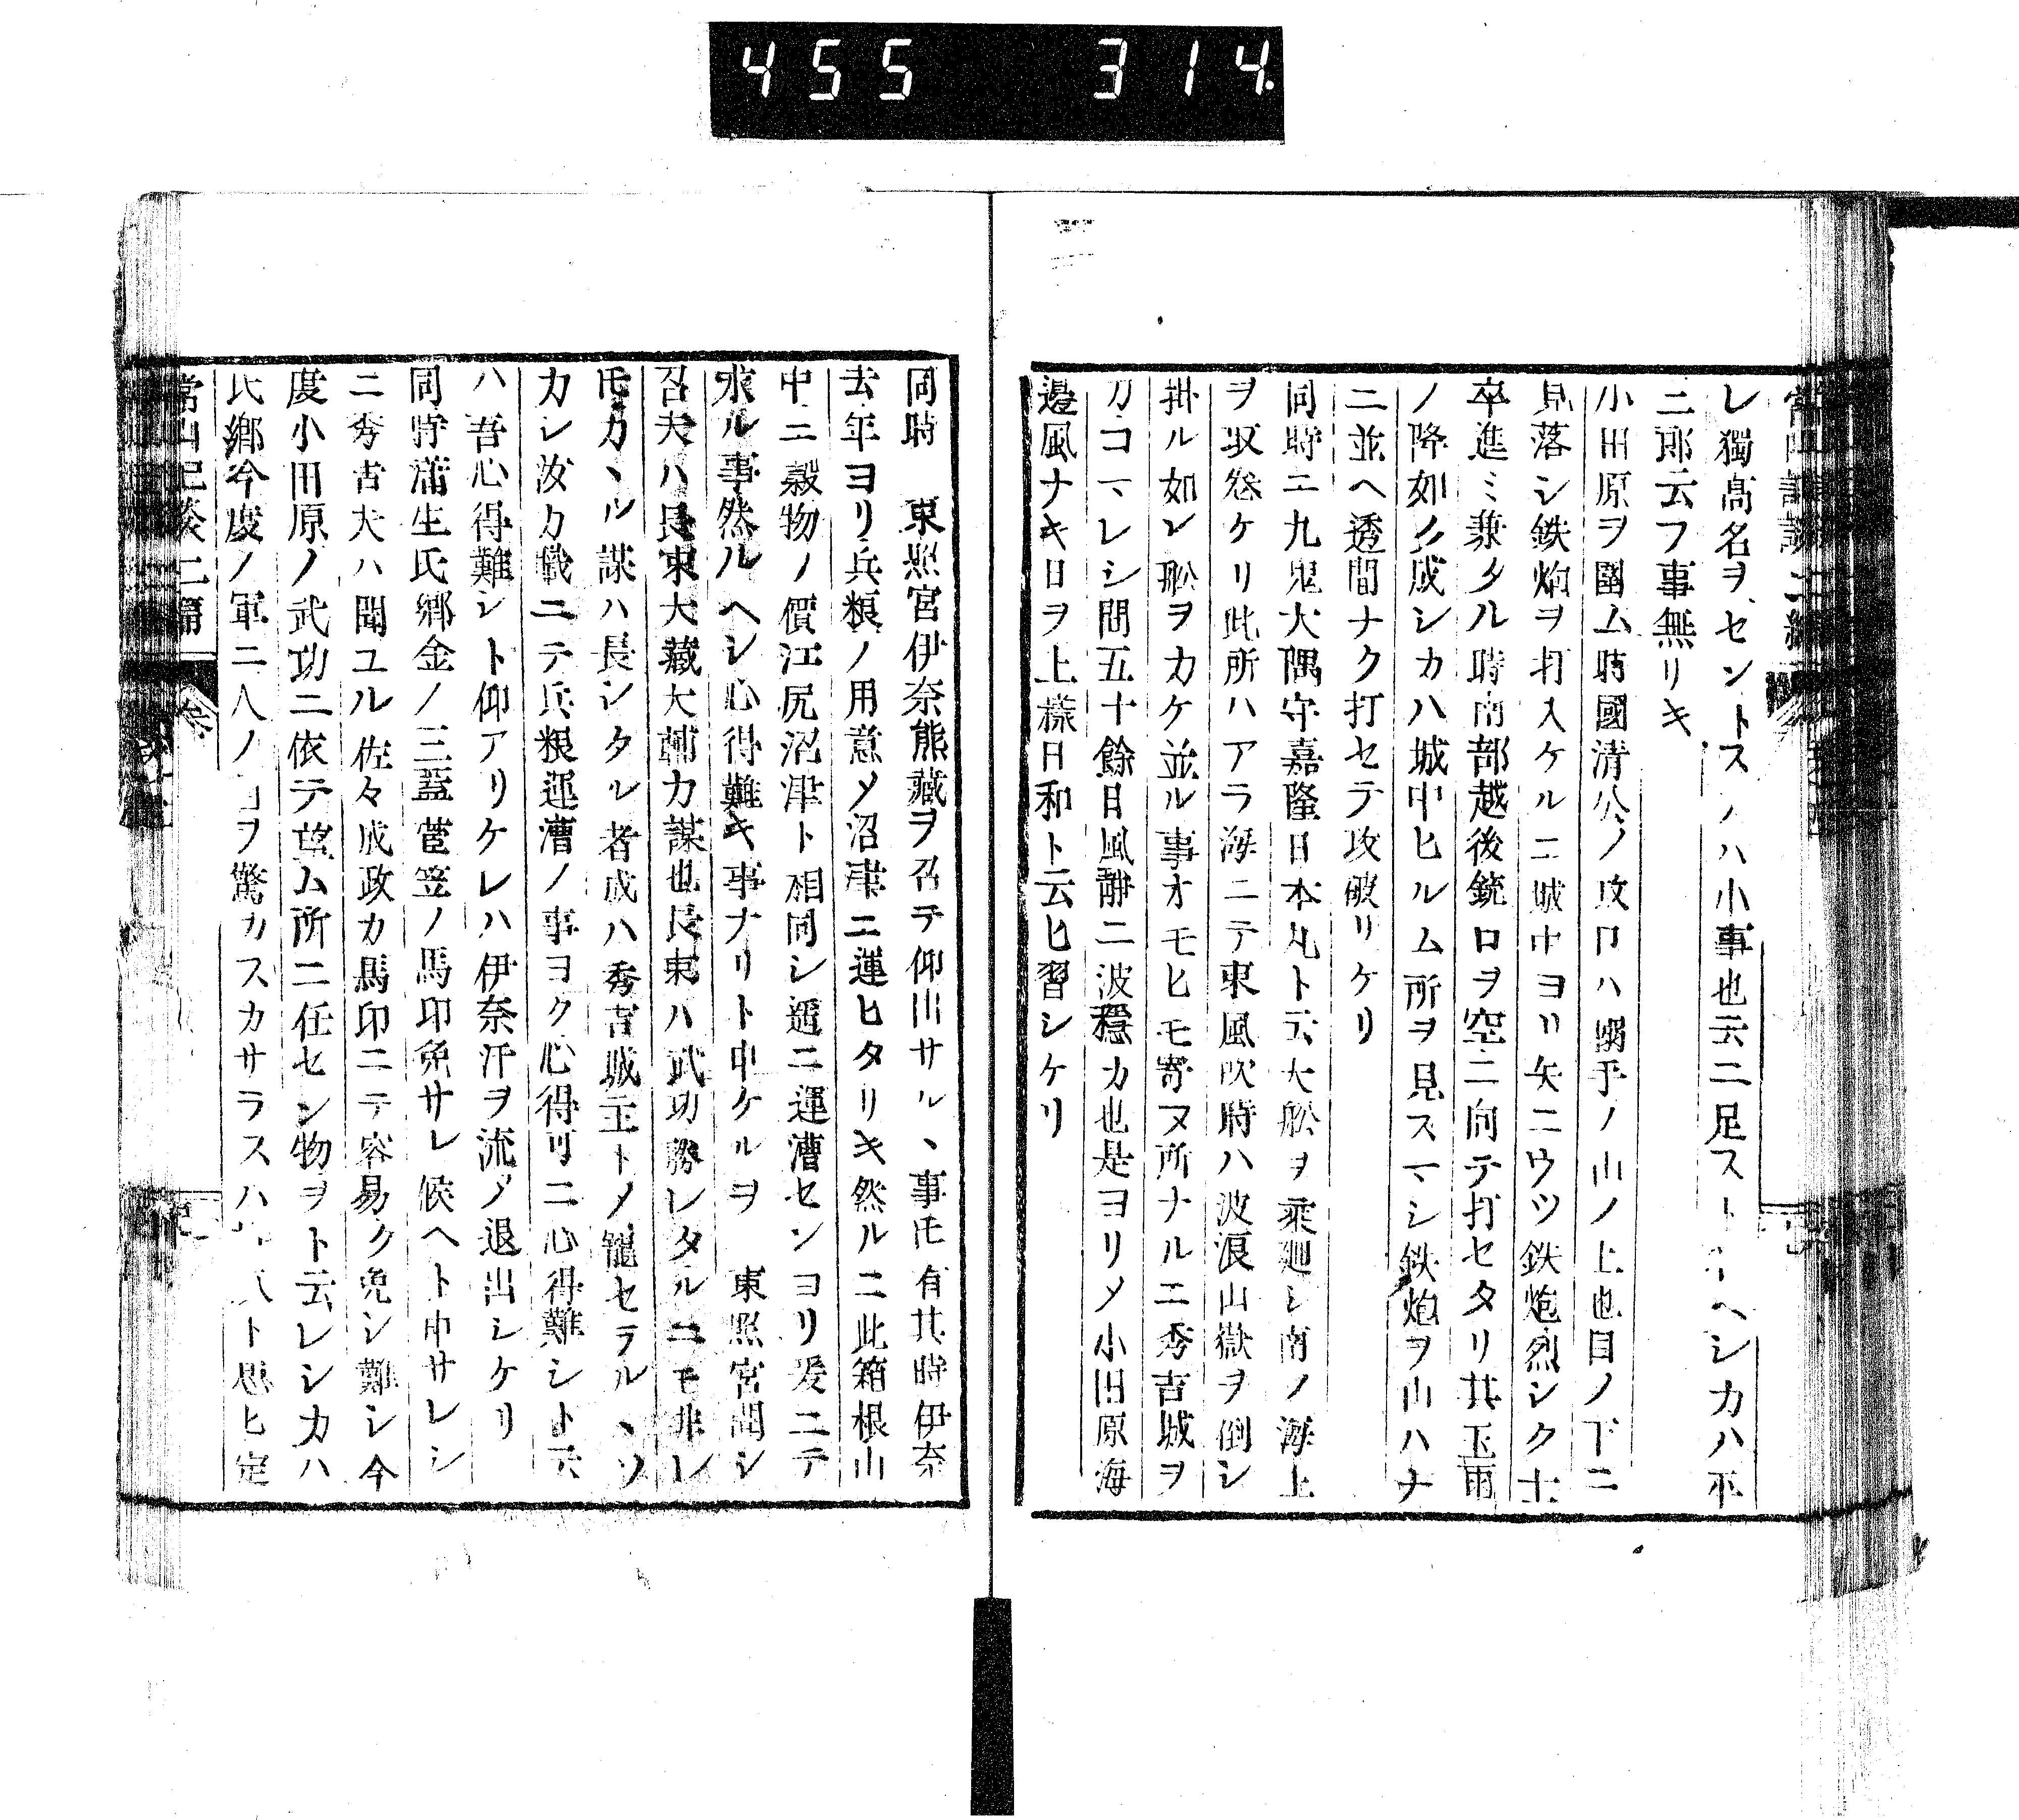 455 314
レ獨高名ヲセントスルハ小事也云ニ足ストヘシカハ平
三郎云フ事無リキ
小田原ヲ圍ム時國清公ノ攻口ハ搦手ノ山ノ上也目ノ下ニ
見落シ鉄炮ヲ打入ケルニ城中ヨリ矢ニウツ鉄炮烈シク士
卒進ミ兼タル時南部越後銃口ヲ空ニ向テ打セタリ其玉雨
ノ降如ク成シカハ城中ヒルム所ヲ見スマシ鉄炮ヲ山ハナ
ニ並ヘ透間ナク打セテ攻破リケリ
同時ニ九鬼大隅守嘉隆日本丸ト云大舩ヲ乗廻シ南ノ海上
ヲ取巻ケリ此所ハアラ海ニテ東風吹時ハ波浪山嶽ヲ倒シ
掛ル如レ舩ヲカケ並ル事オモヒモ寄ヌ所ナルニ秀吉城ヲ
カコマレシ間五十餘日風静ニ波穏カ也是ヨリメ小田原海
邉風ナキ日ヲ上樣日和ト云ヒ習シケリ
同時 東照宮伊奈熊藏ヲ召テ仰出サルヽ事氏有其時伊奈
去年ヨリ兵粮ノ用意メ沼津ニ運ヒタリキ然ルニ此箱根山
中ニ穀物ノ價江尻沼津ト相同シ遥ニ運漕センヨリ爰ニテ
求ル事然ルヘシ心得難キ事ナリト申ケルヲ 東照宮聞シ
召夫ハ長束大藏大輔カ謀也長束ハ武功勝レタルニモ非レ
氏カヽル謀ハ長シタル者成ハ秀吉城主トメ寵セラルヽソ
カレ汝カ職ニテ兵粮運漕ノ事ヨク心得可ニ心得難シト云
ハ吾心得難シト仰アリケレハ伊奈汗ヲ流メ退出シケリ
同時蒲生氏郷金ノ三蓋菅笠ノ馬印免サレ候ヘト申サレシ
ニ秀吉夫ハ聞ユル佐々成政カ馬印ニテ容易ク免シ難シ今
度小田原ノ武功ニ依テ望ム所ニ任セン物ヲト云レシカハ
氏郷今度ノ軍ニ人ノ目ヲ驚カスカサラスハ ト思ヒ定
常山紀談二編